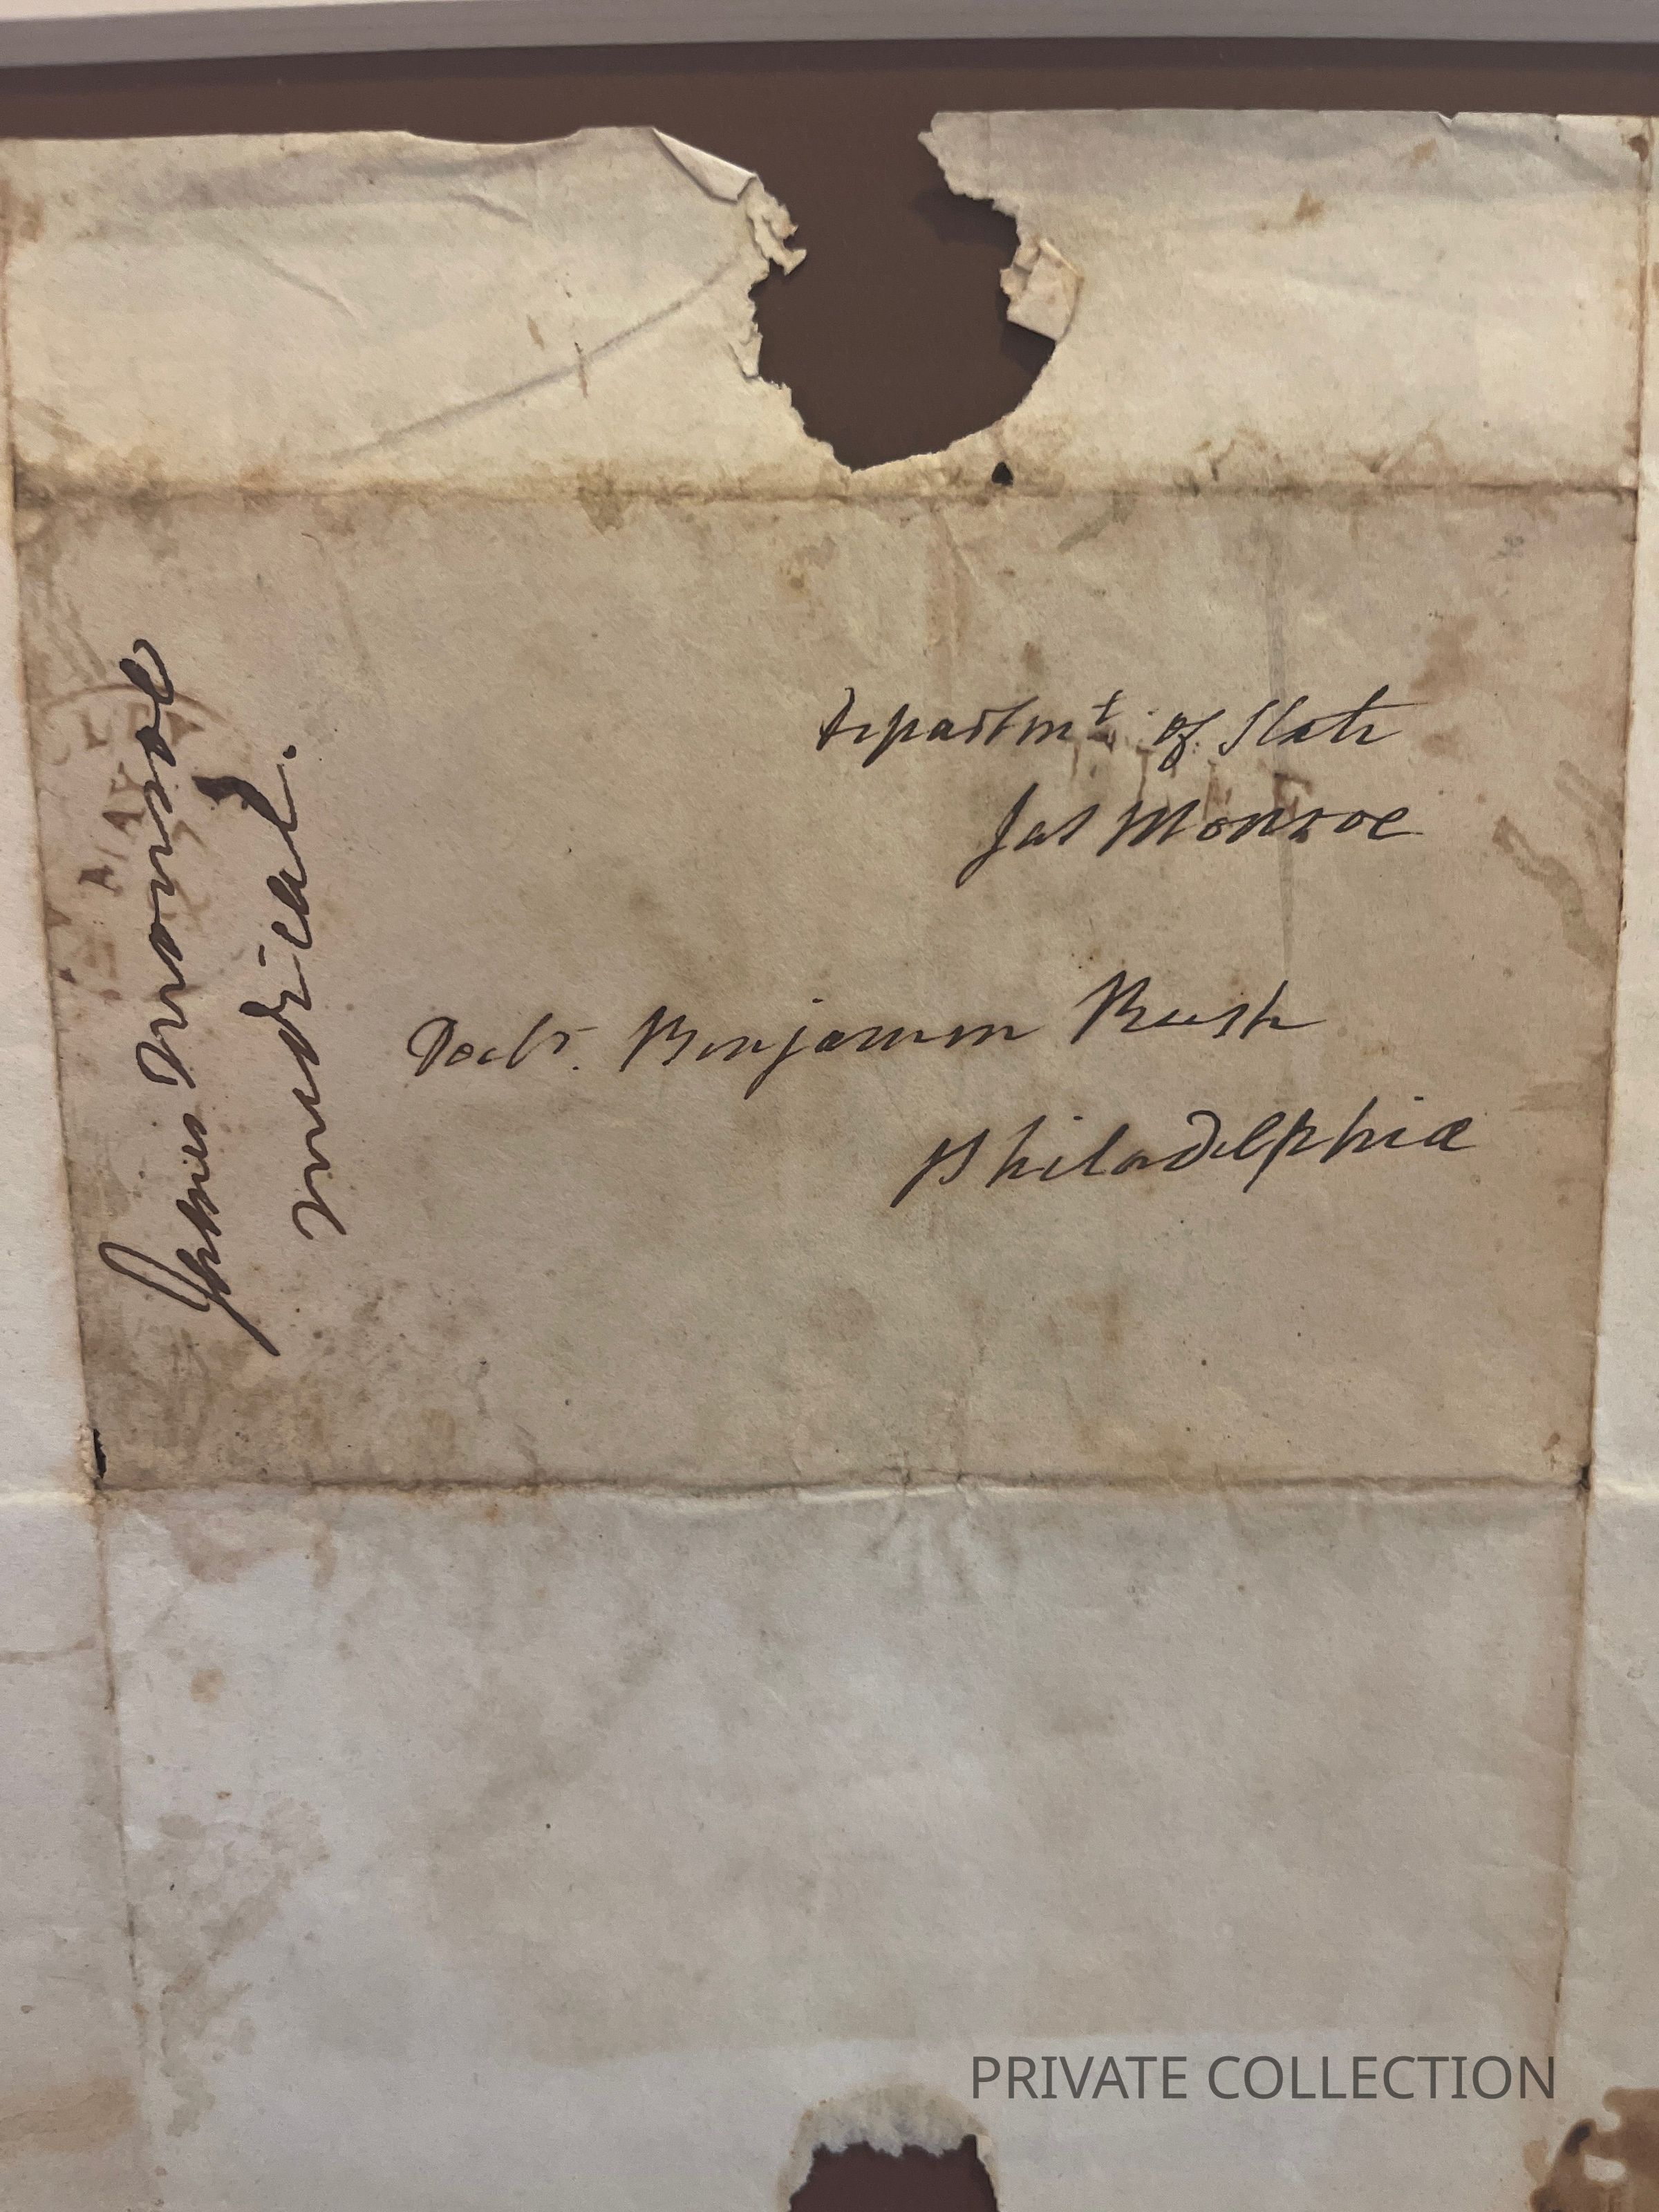 Departmt of State
Jas Monroe
Doctr. Benjamin Rush
Philadelphia
James Monroe
medical.
PRIVATE COLLECTION